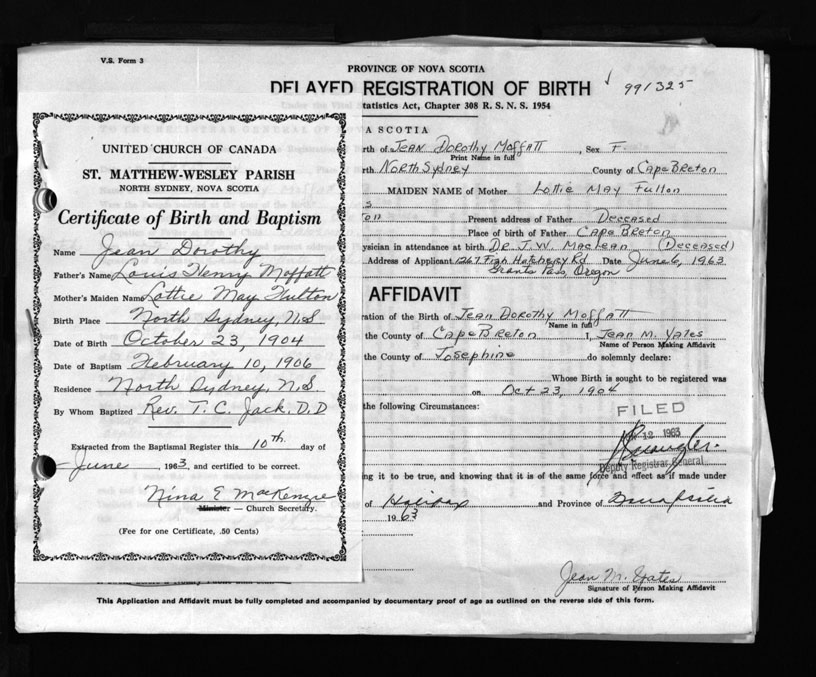 V.S. Form 3
PROVINCE OF NOVA SCOTIA
DELAYED REGISTRATION OF BIRTH
991325
tatistics Act, Chapter 308 R. S. N. S. 1954
A SCOTIA
rth of Jean Dorothy Moffatt, Sex F.
Print Name in full
rth North Sydney County of Cape Breton
MAIDEN NAME of Mother Lottie May Fulton
s
Present address of Father Deceased
Place of birth of Father Cape Breton
ysician in attendance at birth Dr. J. W. MacLean (Deceased)
Address of Applicant 1267 Fish Hatchery Rd Date June 6, 1963
Grants Pass, Oregon
AFFIDAVIT
ration of the Birth of Jean Dorothy Moffatt
Name in full
the County of Cape Breton I, Jean M. Yates
Name of Person Making Affidavit
the County of Josephine do solemnly declare:
Whose Birth is sought to be registered was
on Oct 23, 1904
the following Circumstances:
FILED
12 1963
Deputy Registrar General
ing it to be true, and knowing that it is of the same force and effect as if made under
of Halifax and Province of
1963
Jean M. Yates
Signature of Person Making Affidavit
This Application and Affidavit must be fully completed and accompanied by documentary proof of age as outlined on the reverse side of this form.
UNITED CHURCH OF CANADA
ST. MATTHEW-WESLEY PARISH
NORTH SYDNEY, NOVA SCOTIA
Certificate of Birth and Baptism
Name Jean Dorothy
Father's Name Louis Henry Moffatt
Mother's Maiden Name Lottie May Fulton
Birth Place North Sydney, N.S
Date of Birth October 23, 1904
Date of Baptism February 10, 1906
Residence North Sydney, N.S
By Whom Baptized Rev. T. C. Jack, D.D
Extracted from the Baptismal Register this 10th day of
June, 1963, and certified to be correct.
Nina E MacKenzie
Minister — Church Secretary.
(Fee for one Certificate, .50 Cents)